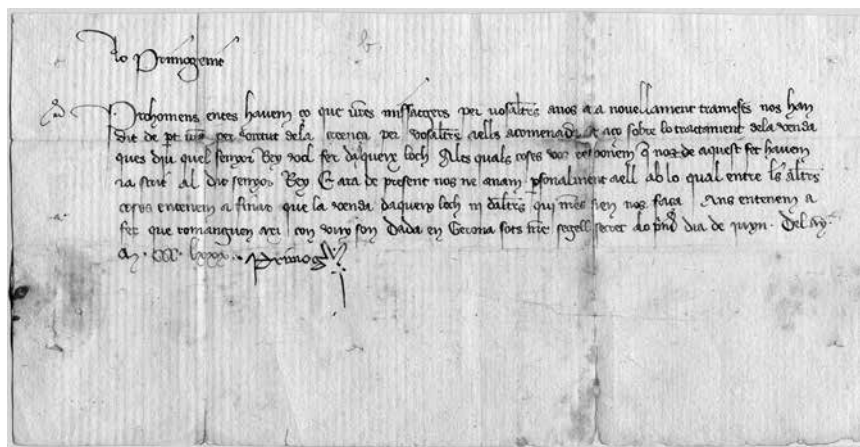 Lo Primogenit
Prohomens entes havem ço que vres missatgers per vosaltres a nos ara novellament trameses nos han
dit de part vra per vertut dela creença per vosaltres a ells acomenada E aço sobre lo tractament dela venda
ques diu quel senyor Rey vol fer daqueix loch A les quals coses vos responem que nos de aquest fet havem
ja scrit al dit senyor Rey E ara de present nos ne anam personalment a ell ab lo qual entre les altres
coses entenem a finar que la venda daqueix loch ni daltres qui mes sien nos faça Ans entenem a
fer que romanguen axi con vuy son Dada en Gerona sots nre segell secret lo primer dia de juyn. Del any
M. CCC. lxxx. Primogs